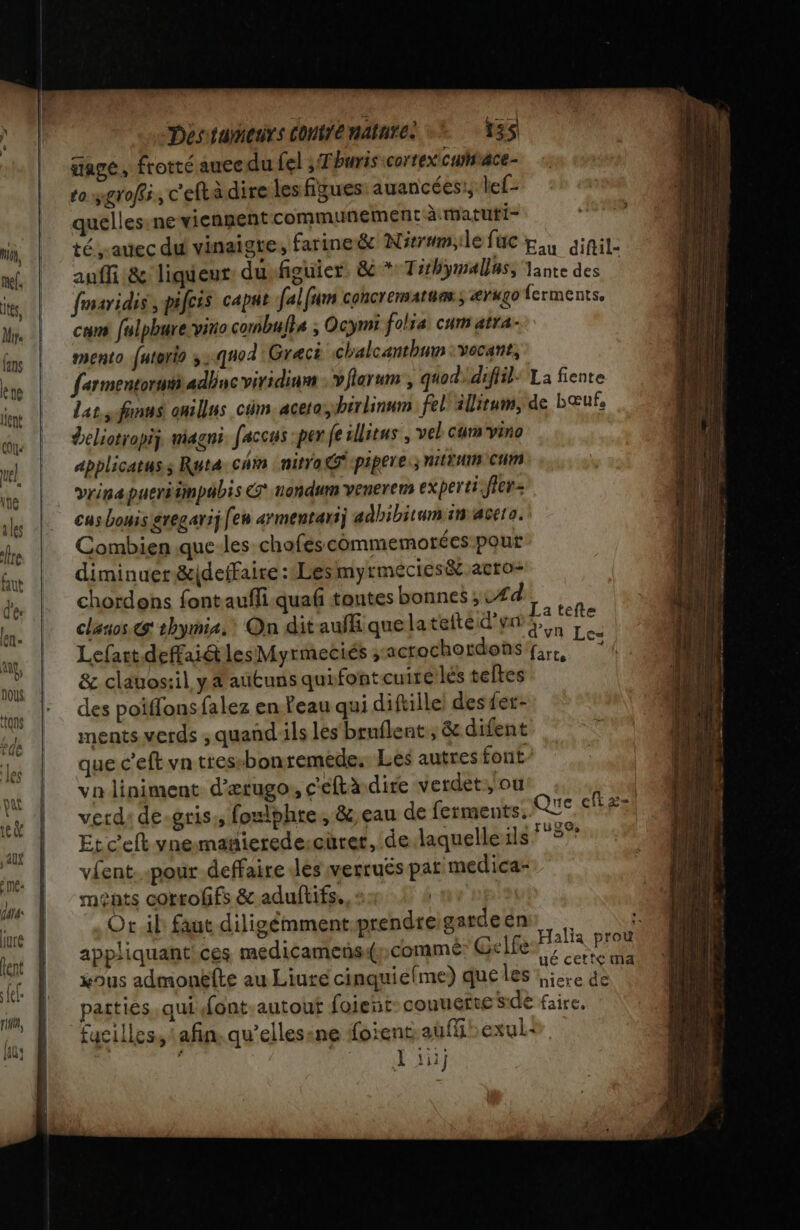 Des tumeurs contre nature. 135
mage, frotté auec du ſel, Thuris cortex cum ace-
to, groſſi, c'eſt à dire les figues auancées, leſ-
quelles ne viennent communement à maturi-
té, auec du vinaigre, farine & Nitrum, le ſuc
auſſi & liqueur du figuier & * Tithymallus,
ſmaridis, piſcis caput ſalſum concrematum, ærugo
cum ſulphure viuo combuſta, Ocymi folia cum atra-
mento ſutorio, quod Græci chalcanthum vocant,
ſarmentorum adhuc viridium vſtorum, quod diſtil-
lat, fimus ouillus cùm aceto, hirlinum fel illitum,
heliotropij magni ſaccus per ſe illitus, vel cum vino
applicatus, Ruta cùm nitro & pipere, nitrum cùm
vrina pueri impubis & nondum venerem experti, ſter-
cus bouis gregarij ſeu armentarij adhibitum in aceto.
Combien que les choſes commemorées pour
diminuer & deffaire: Les myrmecies & acro-
chordons ſont auſſi quaſi toutes bonnes, Ad
clauos & thymia. On dit auſſi que la teſte d'vn
Leſart deffaict les Myrmeciés, acrochordons
& clauos: il y a aucuns qui font cuire lés teſtes
des poiſſons ſalez en l'eau qui diſtille des ſer-
ments verds, quand ils les bruſlent, & diſent
que c'eſt vn tres-bon remede. Les autres font
vn liniment d'ærugo, c'eſt à dire verdet, ou
verd de gris, ſoulphre, & eau de ſerments,
Et c'eſt vne maniere de curer, de laquelle ils
vſent pour deffaire les verruës par medica-
ments corroſifs & aduſtifs.
Or il faut diligemment prendre garde en
appliquant ces medicamens (comme Celſe
vous admoneſte au Liure cinquieſme) que les
parties qui ſont autour ſoient couuertes de
fueilles, afin qu'elles ne ſoient auſſi exul-
I iiij
Eau diſtil-
lante des
ſerments.
La fiente
de bœuf.
La teſte
d'vn Le-
ſart,
Que eſt æ-
rugo,
Halia prou
ué cette ma
niere de
faire.